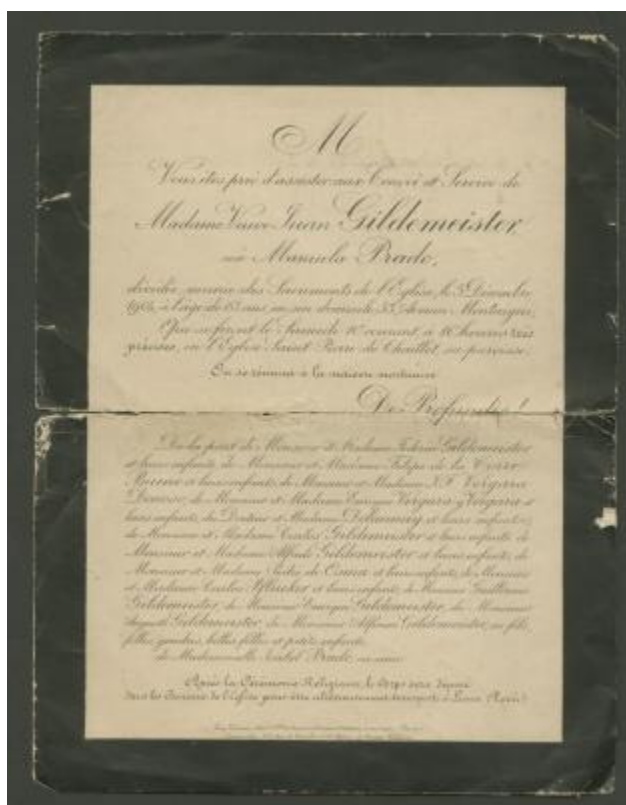 M
Vous êtes prié d'assister aux Convoi et Service de
Madame Veuve Juan Gildemeister,
née Manuela Prado,
décédée, munie des Sacrements de l'Eglise, le 5 Décembre
à l'âge de ans en son domicile, Avenue Montaigne,
Qui se feront le Samedi 10 courant à 10 heures très
précises, en l'Eglise Saint Pierre de Chaillot, sa paroisse.
On se réunira à la maison mortuaire
De Profundis!
De la part de Monsieur et Madame Gildemeister
et leurs enfants, de Monsieur et Madame Felipe de la Torre
Bueno et leurs enfants, de Monsieur et Madame Vergara
Donoso, de Monsieur et Madame Enrique Vergara y Vergara et
leurs enfants, du Docteur et Madame Delaunay et leurs enfants,
de Monsieur et Madame Carlos Gildemeister et leurs enfants, de
Monsieur et Madame Alfredo Gildemeister et leurs enfants, de
Monsieur et Madame Pedro de Osma et leurs enfants, de Monsieur
et Madame Carlos Pflücker et leurs enfants, de Monsieur Guillermo
Gildemeister, de Monsieur Enrique Gildemeister, de Monsieur
Augusto Gildemeister, de Monsieur Alfonso Gildemeister, ses fils,
filles, gendres, belles filles et petits enfants,
de Mademoiselle Isabel Prado, sa sœur.
Après la Cérémonie Religieuse, le Corps sera déposé
dans les Caveaux de l'Eglise pour être ultérieurement transporté à Lima (Pérou)